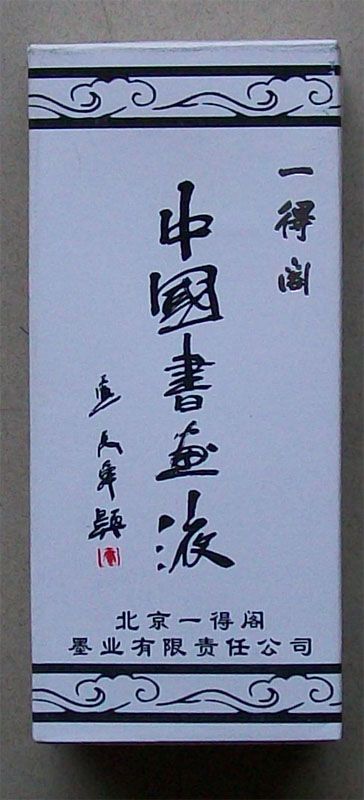 一得阁
中國書畫液
北京一得阁
墨业有限责任公司